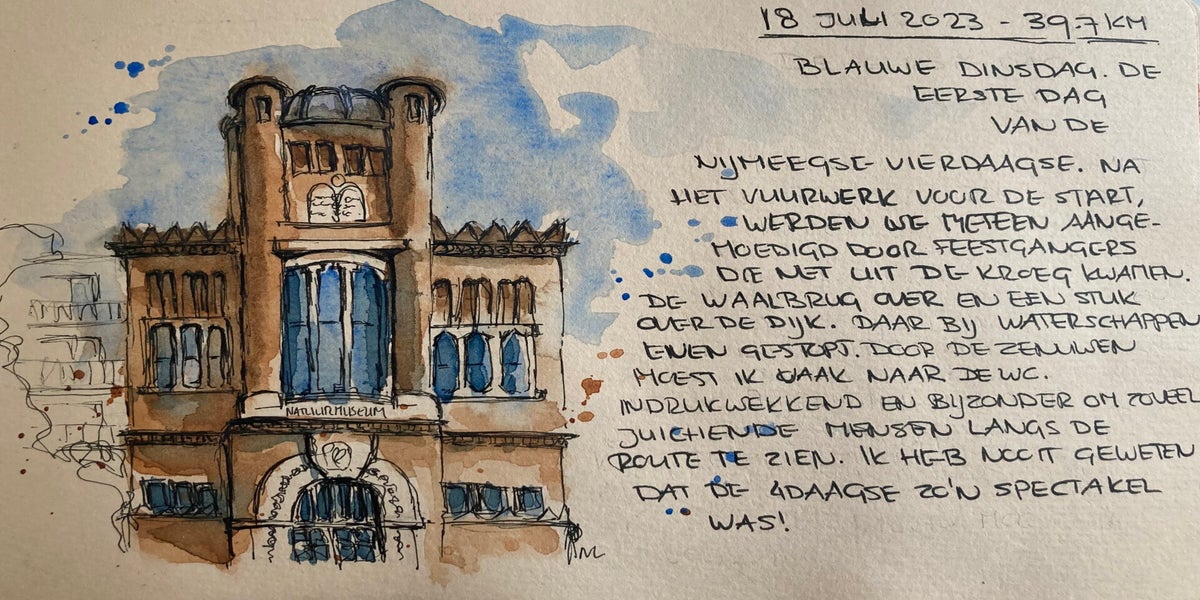 18 JULI 2023 - 39.7 KM
BLAUWE DINSDAG. DE
EERSTE DAG
VAN DE
NIJMEEGSE VIERDAAGSE. NA
HET VUURWERK VOOR DE START,
WERDEN WE METEEN AANGE-
MOEDIGD DOOR FEESTGANGERS
DIE NET UIT DE KROEG KWAMEN.
DE WAALBRUG OVER EN EEN STUK
OVER DE DIJK. DAAR BIJ WATERSCHAPPEN
EVEN GESTOPT. DOOR DE ZENUWEN
MOEST IK VAAK NAAR DE WC.
INDRUKWEKKEND EN BIJZONDER OM ZOVEEL
JUICHENDE MENSEN LANGS DE
ROUTE TE ZIEN. IK HEB NOOIT GEWETEN
DAT DE 4DAAGSE ZO'N SPECTAKEL
WAS!
NATUURMUSEUM